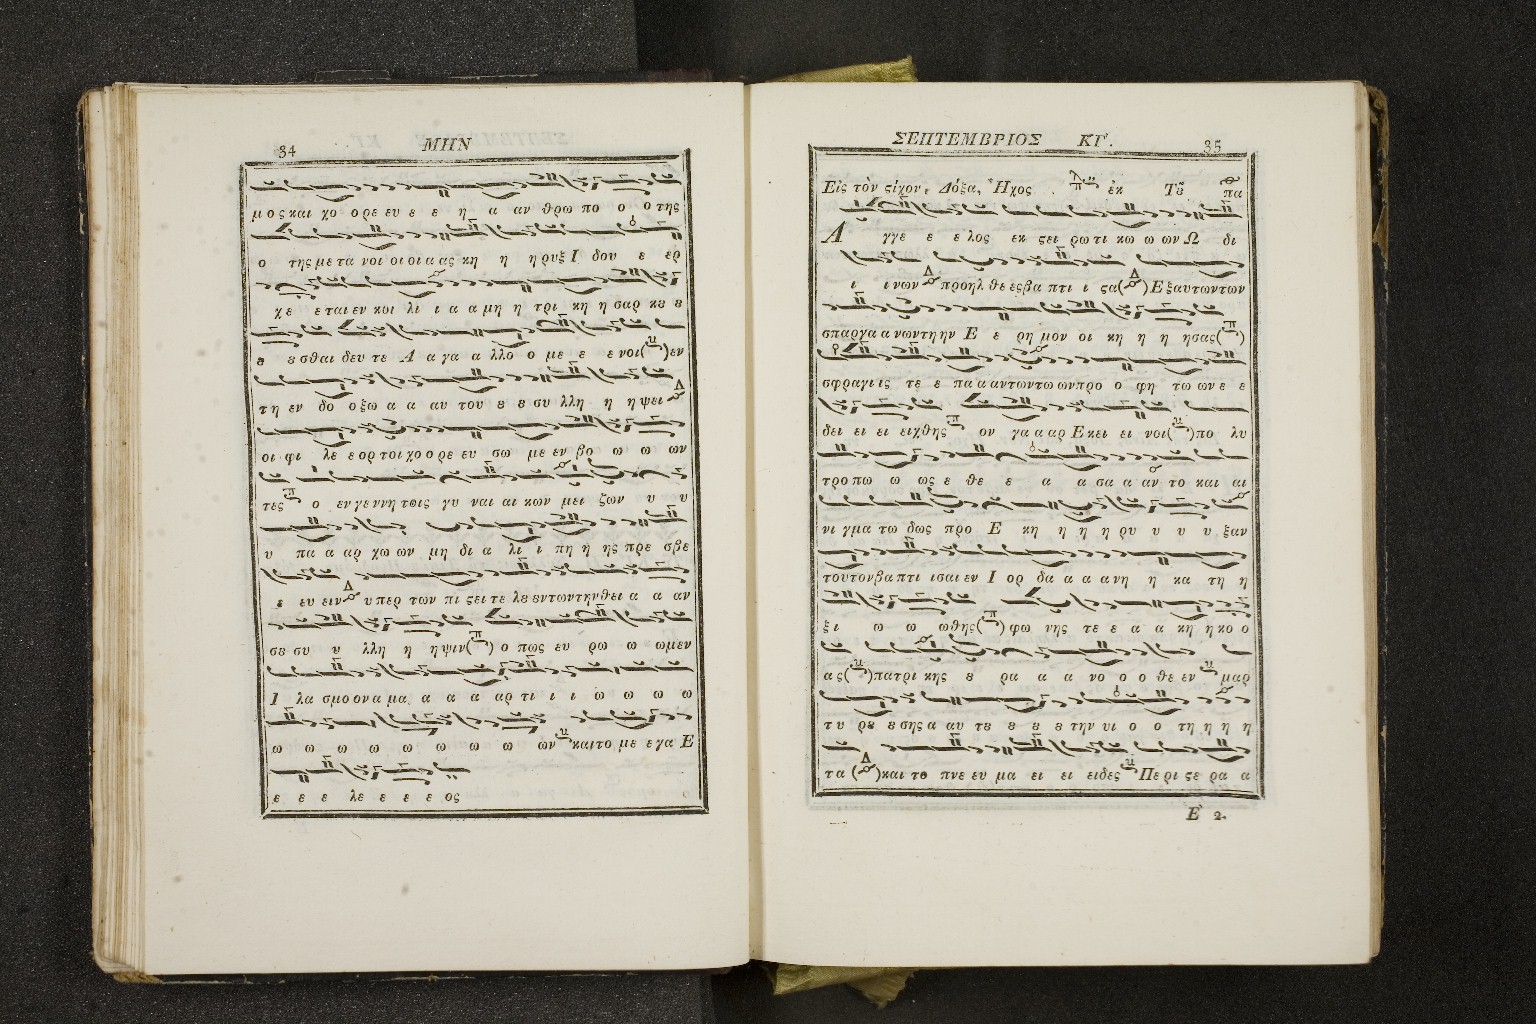 34
ΜΗΝ
μος και χο ο ρε ευ ε ε η α αν θρω πο ο ο της
ο της με τα νοι οι οι α ας κη η η ρυξ Ι δου ε ερ
χε ε ται εν κοι λι ι α α μη η τρι κη η σαρ κȣ ȣ
ȣ ȣσθαι δευ τε Α α γα α λλο ο με ε ε νοι εν
τη εν δο ο ξω α α αυ του ȣ ȣ συ λλη η η ψει
οι φι λε ε ορ τοι χο ο ρε ευ σω με εν βο ω ω ων
τες ο εν γεν νη τοις γυ ναι αι κων μει ζων υ υ
υ πα α αρ χω ων μη δι α λι ι πη η ης πρε σβε
ε ευ ειν υ περ των πι ςει τε λȣ ȣντων την θει α α αν
σȣ συ υ λλη η η ψιν(π) ο πως ευ ρω ω ωμεν
Ι λα σμο ον α μα α α α αρ τι ι ι ω ω ω ω
ω ω ω ω ω ω ω ω ων και το με ε γα Ε
ε ε ε λε ε ε ε ος
ΣΕΠΤΕΜΒΡΙΟΣ ΚΓ.
35
Εἰς τὸν ςίχον, Δόξα, Ἦχος ἐκ Τȣ͂ πα
Α γγε ε ε λος εκ ςει ρω τι κω ω ων Ω δι
ι ι νων προηλ θε ες βα πτι ι ςα(Δ) Ε ξαυτωντων
σπαργα α νων τη ην Ε ε ρη μον οι κη η η ησας(π)
σφραγι ις τε ε πα α αντωντω ωνπρο ο φη τω ων ε ε
δει ει ει ειχθης ον γα α αρ Ε κει ει νοι πο λυ
τρο πω ω ως ε θε ε α α σα α αν το και αι
νι γμα τω δως προ Ε κη η η η ρυ υ υ υ ξαν
τουτονβα πτι ισαι εν Ι ορ δα α α α νη η κα τη η
ξι ω ω ωθης(π) φω νης τε ε α α κη η κο ο
ας πατρι κης ȣ ρα α α νο ο ο θε εν μαρ
τυ ρȣ ȣσης α αυ τȣ ȣ ȣ ȣ την υι ο ο τη η η η
τα (Δ) και το πνε ευ μα ει ει ειδες Πε ρι ςε ρα α
Ε 2